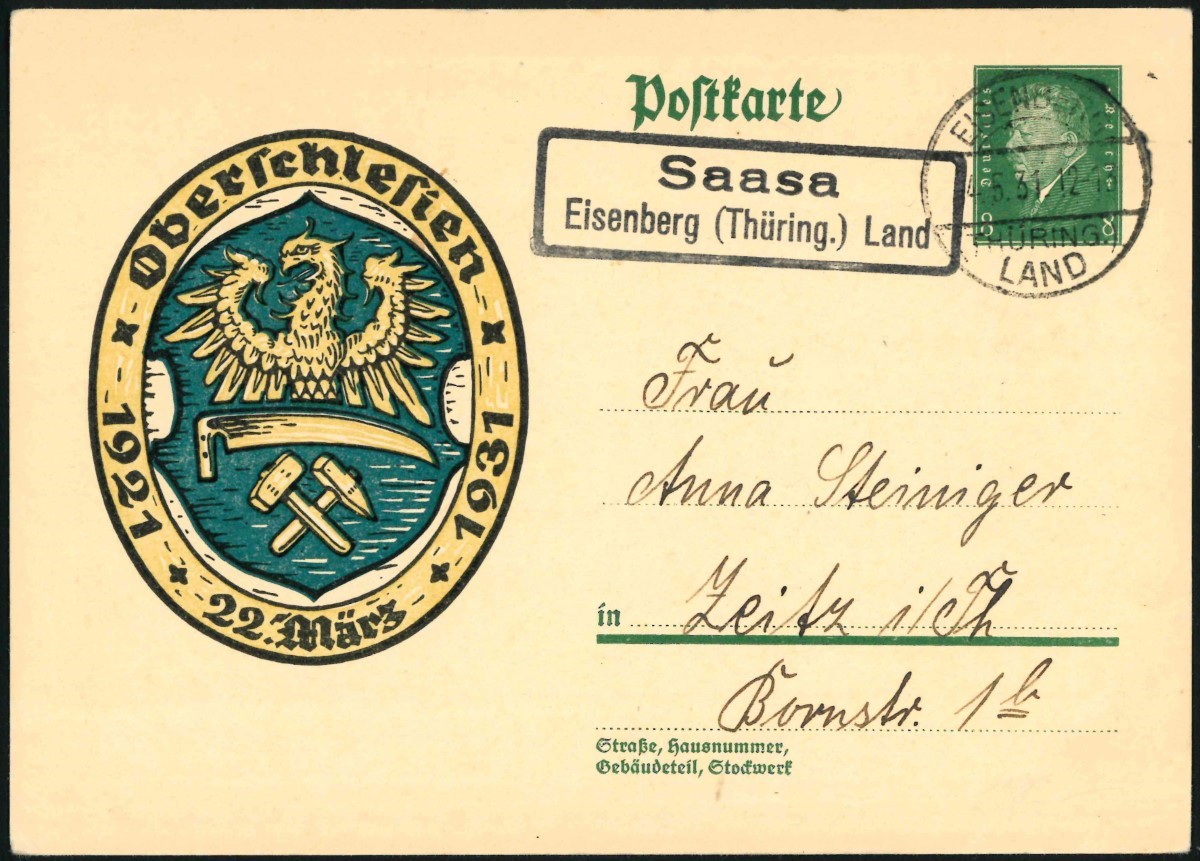 Postkarte
Deutsches Reich
8 8
Saasa
Eisenberg (Thüring.) Land
5.31.12-1
THÜRING.
LAND
Oberschlesien
1921 1931
22. März
Frau
Anna Steiniger
in Zeitz i/Th
Bornstr. 1b
Straße, Hausnummer,
Gebäudeteil, Stockwerk